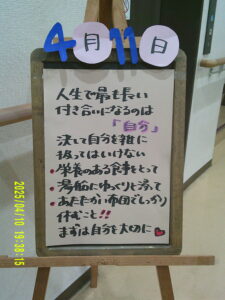 4月11日
人生で最も長い
付き合いになるのは
「自分」
決して自分を雑に
扱ってはいけない
・栄養のある食事をとって
・湯船にゆっくり浸って
・あたたかい布団でしっかり
休むこと!!
まずは自分を大切に♥
2025/04/10 19:38:15